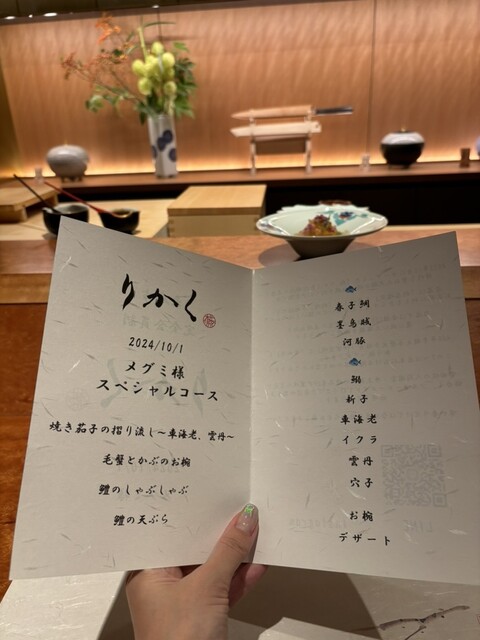 りかく
2024/10/1
メグミ様
スペシャルコース
焼き茄子の摺り流し～車海老、雲丹～
毛蟹とかぶのお椀
鱧のしゃぶしゃぶ
鱧の天ぷら
春子鯛
墨烏賊
河豚
鰯
新子
車海老
イクラ
雲丹
穴子
お椀
デザート